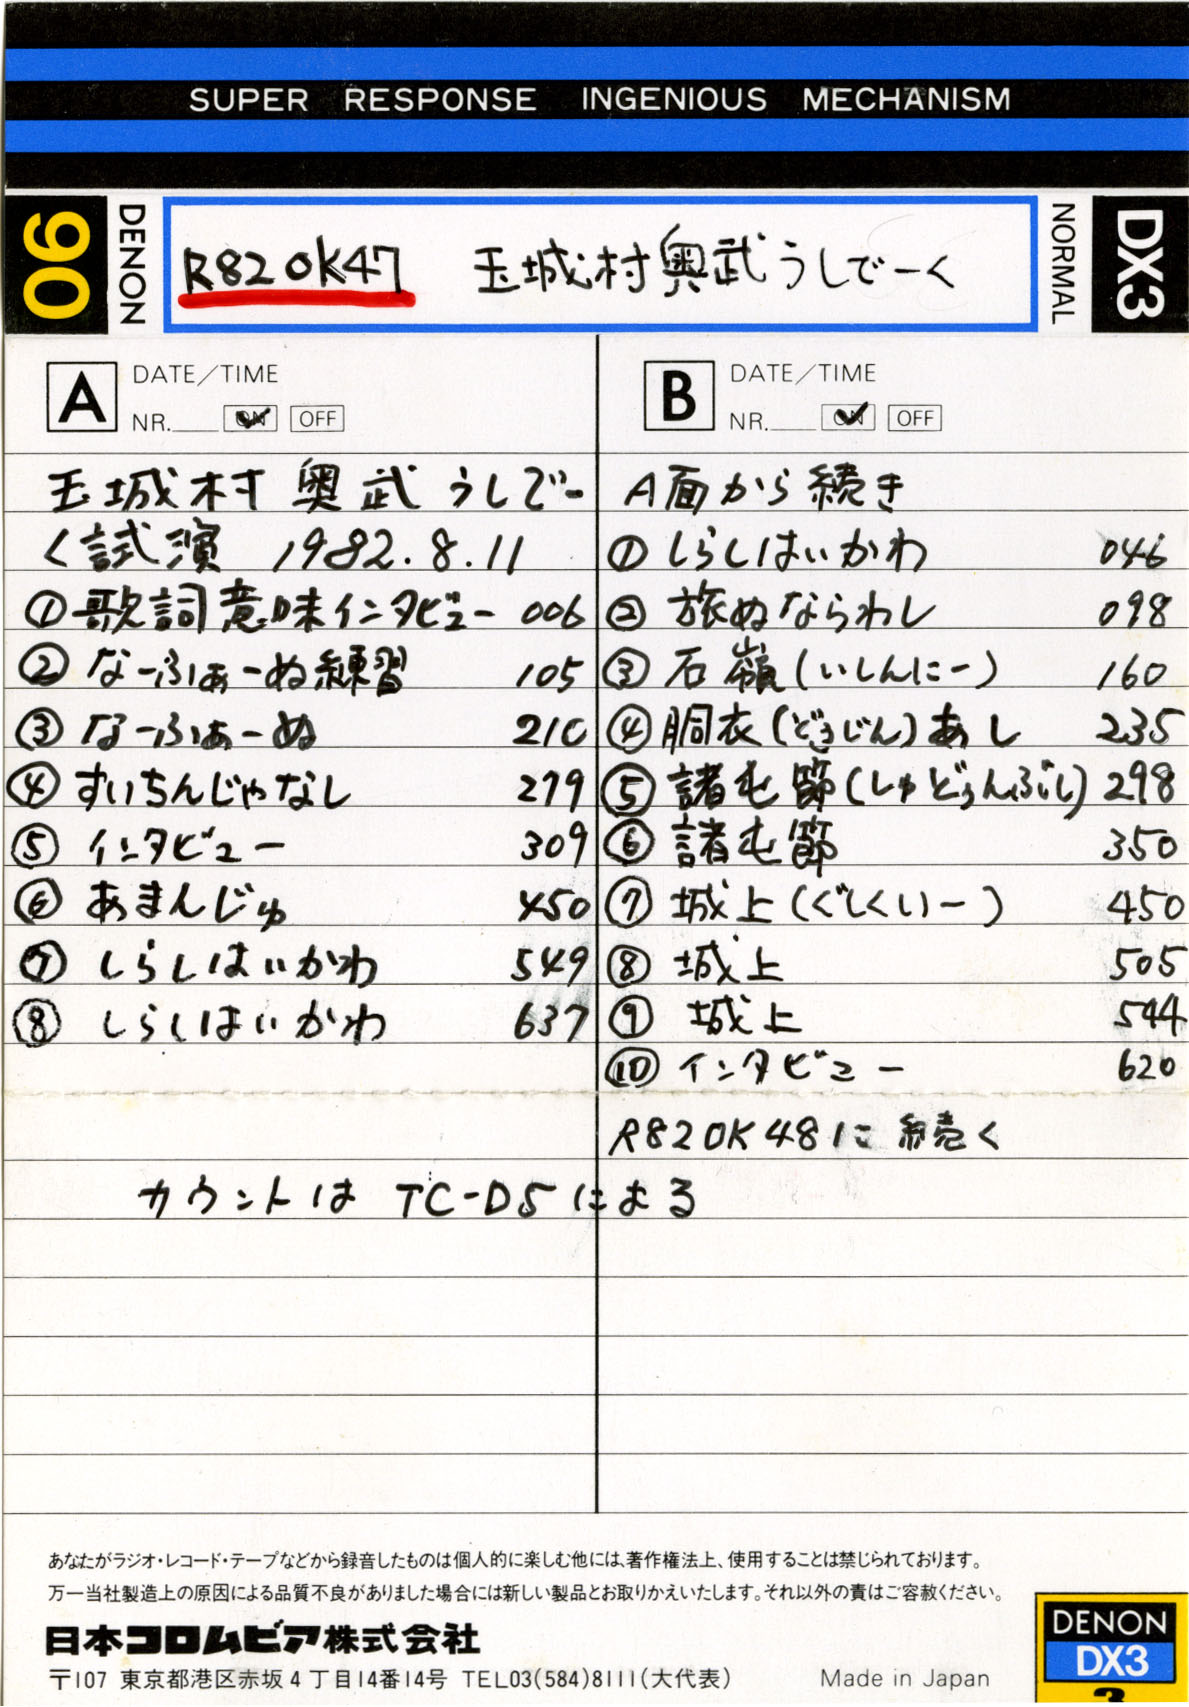 SUPER RESPONSE INGENIOUS MECHANISM
90
DENON
R82OK47 玉城村奥武うしでーく
NORMAL
DX3
A DATE/TIME
NR. ON OFF
玉城村 奥武 うしでー
く試演 1982.8.11
①歌詞意味インタビュー 006
②なーふぁーぬ練習 105
③なーふぁーぬ 210
④すいちんじゃなし 279
⑤インタビュー 309
⑥あまんじゅ 450
⑦しらしはいかわ 549
⑧しらしはいかわ 637
B DATE/TIME
NR. ON OFF
A面から続き
①しらしはいかわ 046
②旅ぬならわし 098
③石嶺(いしんにー) 160
④胴衣(どぅじん)あし 235
⑤諸屯節(しゅどぅんぶし) 298
⑥諸屯節 350
⑦城上(ぐしくいー) 450
⑧城上 505
⑨城上 544
⑩インタビュー 620
R82OK48に続く
カウントは TC-D5による
あなたがラジオ・レコード・テープなどから録音したものは個人的に楽しむ他には、著作権法上、使用することは禁じられております。
万一当社製造上の原因による品質不良がありました場合には新しい製品とお取りかえいたします。それ以外の責はご容赦ください。
日本コロムビア株式会社
〒107 東京都港区赤坂4丁目14番14号 TEL03(584)8111(大代表) Made in Japan
DENON
DX3